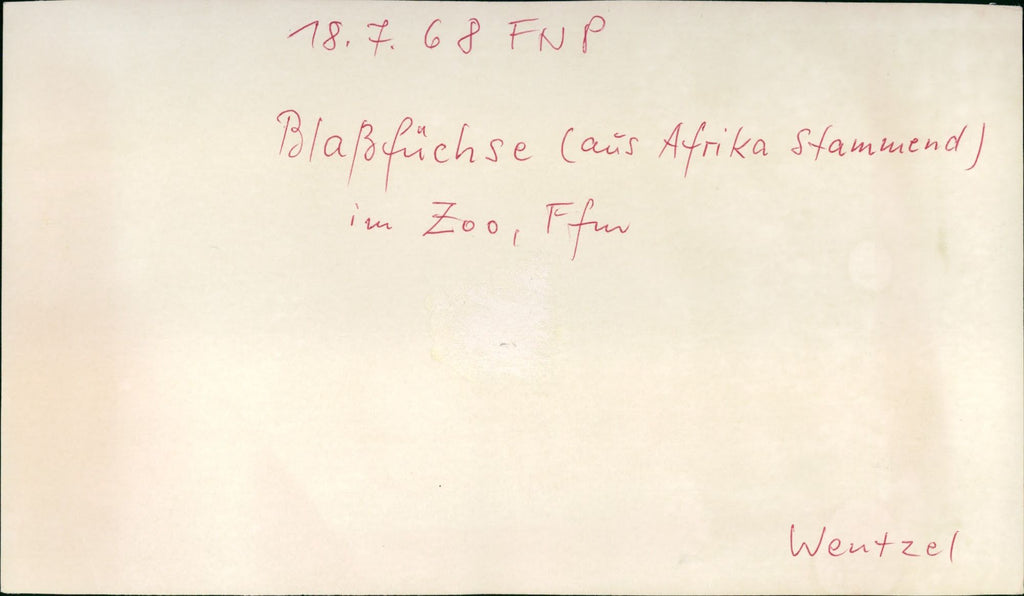 18.7.68 FNP
Blaßfüchse (aus Afrika stammend)
im Zoo, Ffm
Wentzel